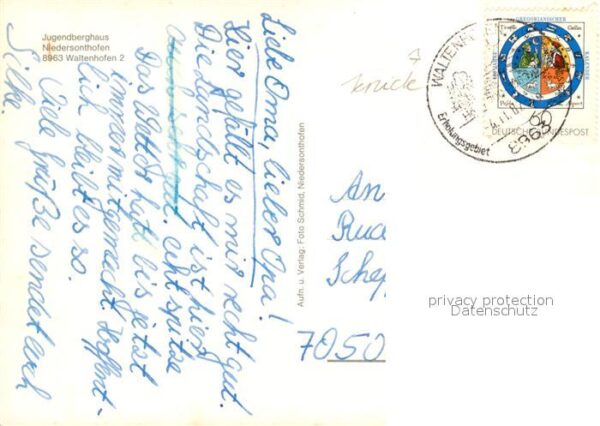 Jugendberghaus
Niedersonthofen
8963 Waltenhofen 2
Liebe Oma, lieber Opa!
Hier gefällt es mir recht gut.
Die Landschaft ist hier
echt spitze
Das Wetter hat bis jetzt
immer mitgemacht. Hoffent-
lich bleibt es so.
Viele Grüße sendet euch
Silke.
Aufn. u. Verlag: Foto Schmid, Niedersonthofen
knicke
An
7050
WALTENH
Erholungsgebiet
8963
GREGORIANISCHER
KALENDER
DEUTSCHE BUNDESPOST
60
privacy protection
Datenschutz